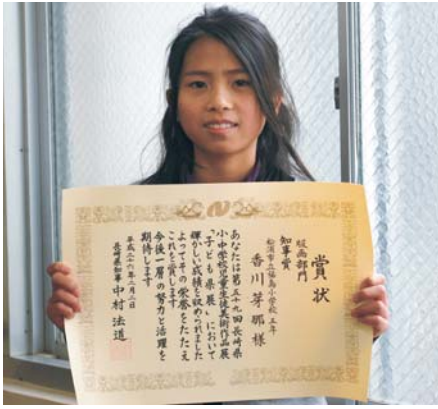 賞状
版画部門
知事賞
松浦市立福島小学校 五年
香川芽那様
あなたは第五十九回長崎県
小中学校児童生徒美術作品展
「子ども県展」において
輝かしい成績を収められました
よってその栄誉をたたえ
これを賞します
今後一層の努力と活躍を
期待します
平成二十六年二月二日
長崎県知事 中村法道